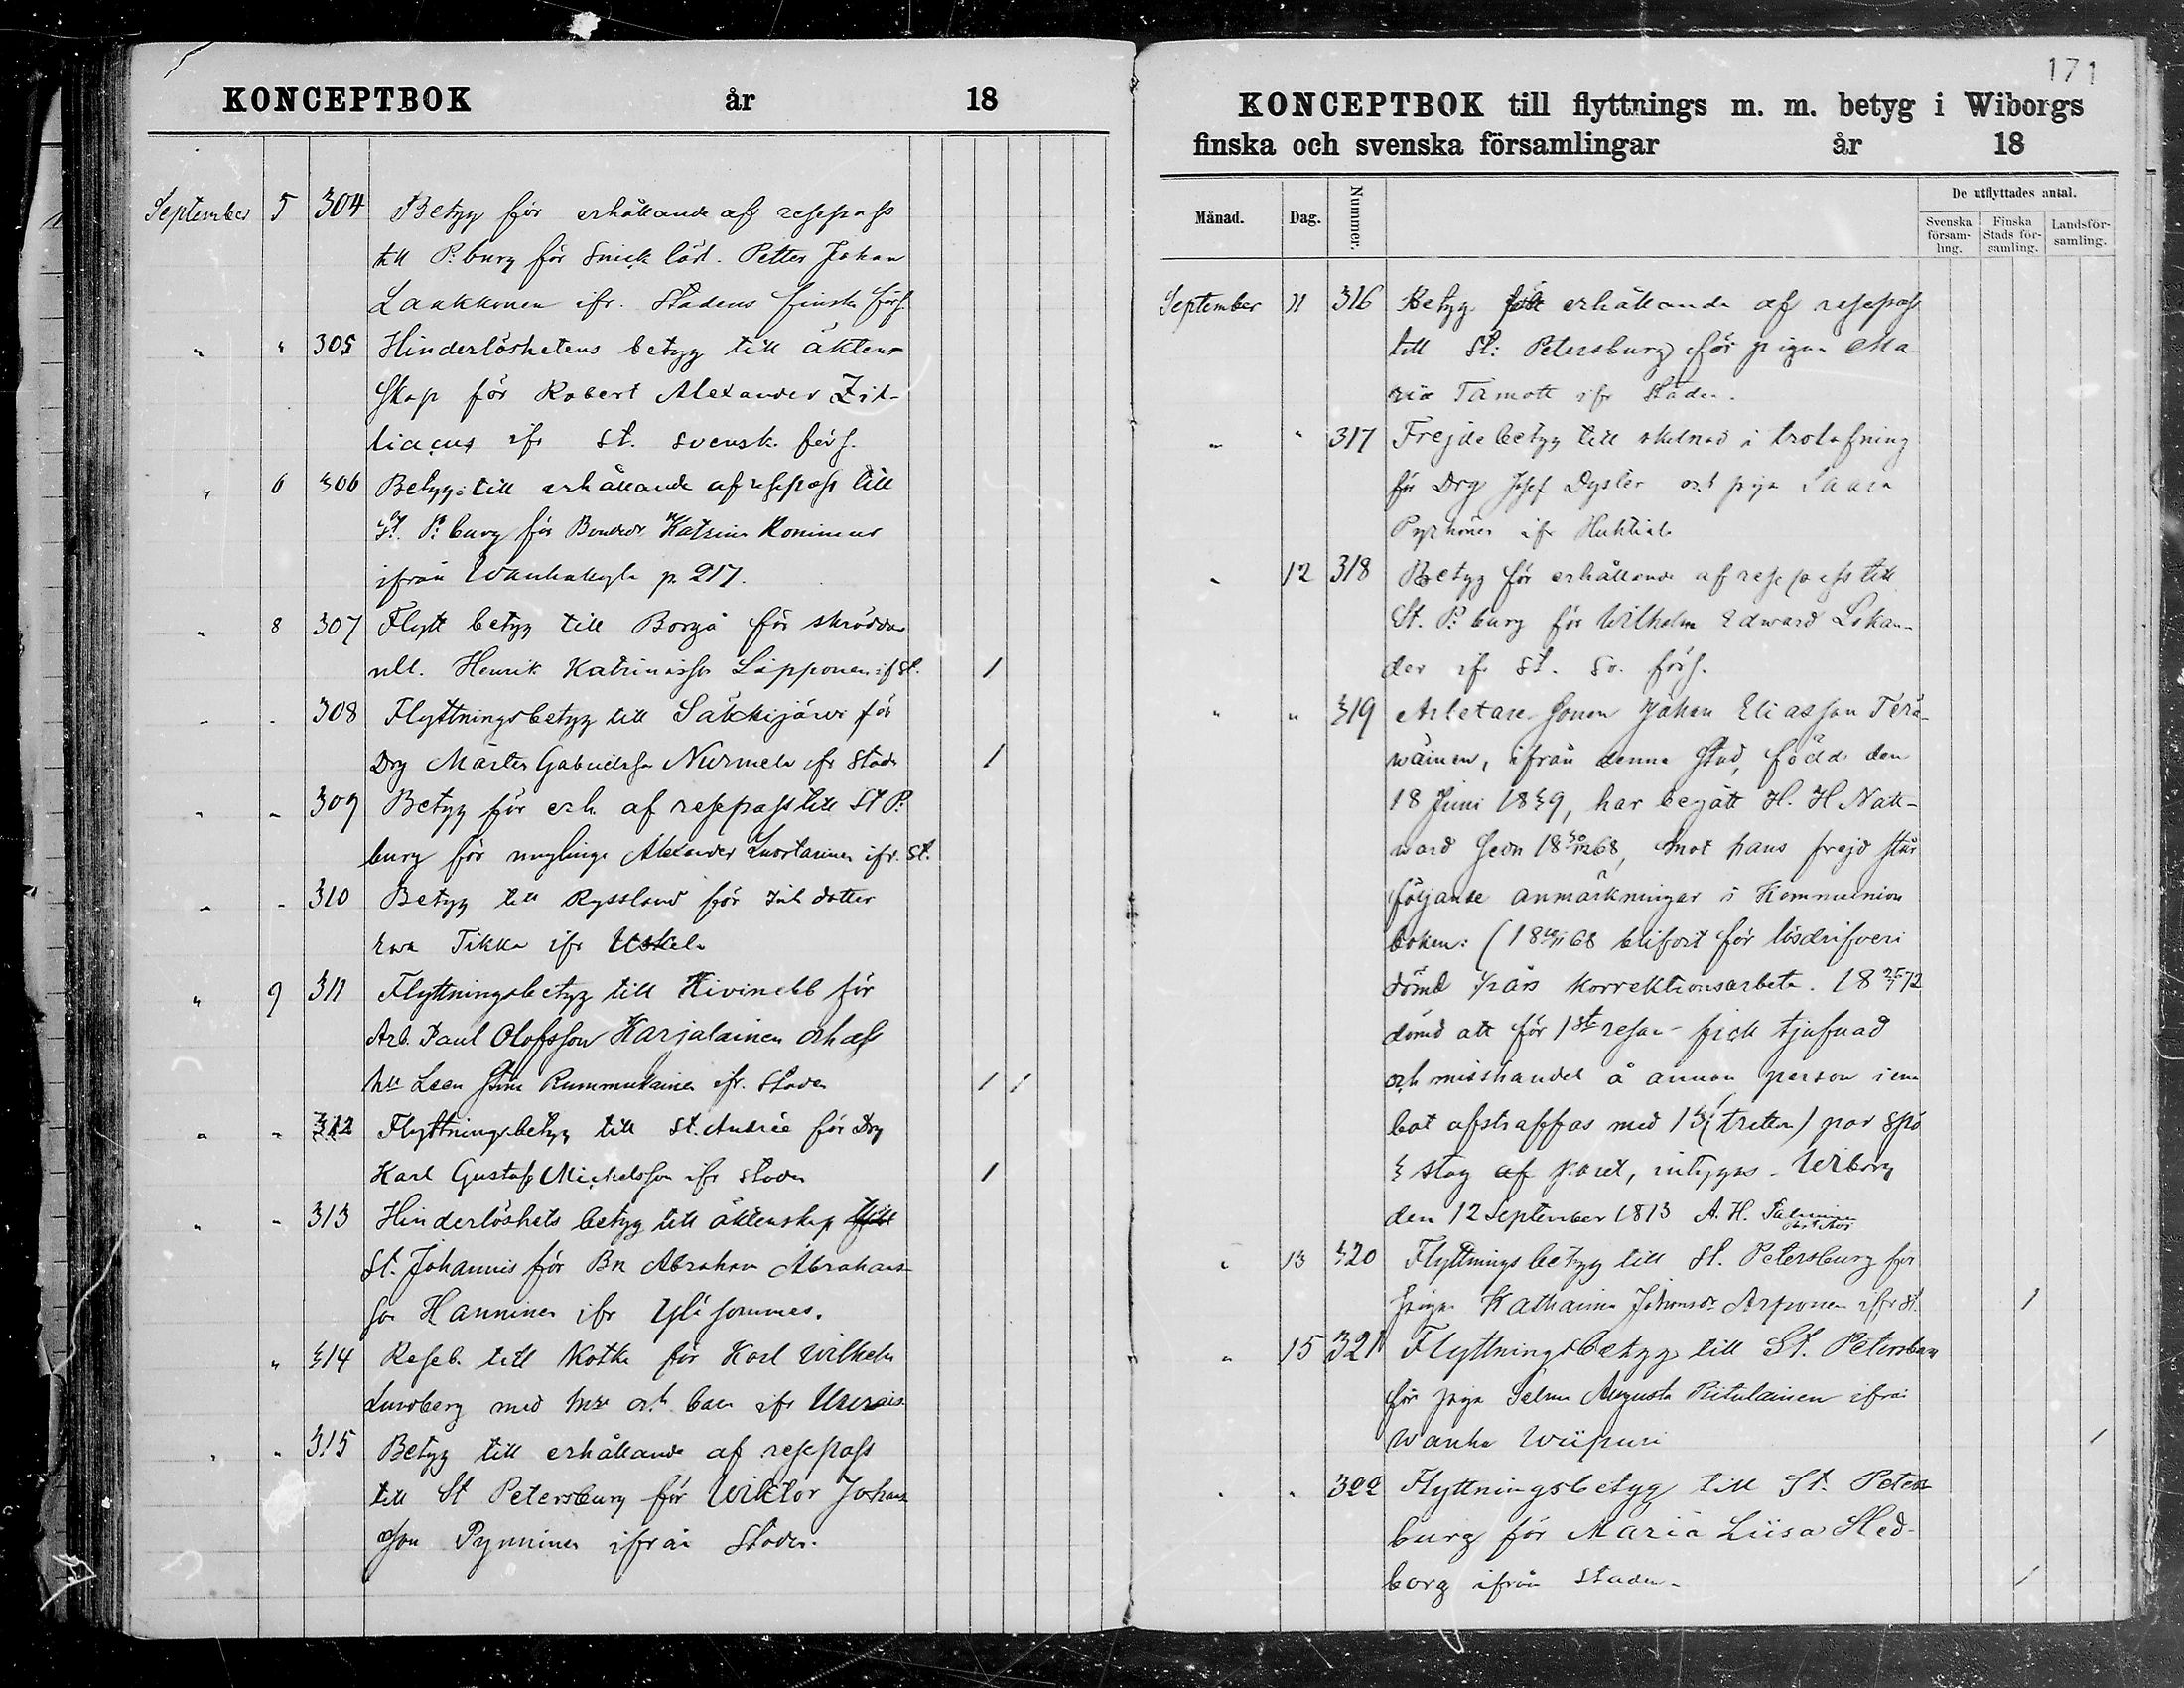 KONCEPTBOK år 18
September 5 304 Betyg för erhållande af resepass
till P:burg för Snick lärl. Petter Johan
Laukkonen ifr. Stadens finska förs.
" " 305 Hinderlöshetens betyg till äkten-
skap för Robert Alexander Zit-
liacus ifr St. svensk. förs.
" 6 306 Betyg till erhållande af resepass till
St. P:burg för Katrina
ifrån Wanhakylä p. 217.
" 8 307 Flytt betyg till Borgå för skrädda-
Henrik Katrinasson Lipponen if St. 1
" " 308 Flyttningsbetyg till Säkkijärvi för
Drg Mårten Gabrielsson Nurmela ifr Staden 1
" " 309 Betyg för erh. af resepass till St P:
burg för ynglinge Alexander ifr. St.
" " 310 Betyg till Ryssland för Inh dotter
Ewa Tikka ifr Uskela
" 9 311 Flyttningsbetyg till Kivinebb för
Arb. Paul Olofsson Karjalainen och dess
hu Leena Stina Rummukainen ifr. Staden 1 1
" " 312 Flyttningsbetyg till St. Andreæ för Drg
Karl Gustaf Michelsson ifr Staden 1
" " 313 Hinderlöshets betyg till äktenskap
St. Johannis för Bn Abraham Abrahams-
son Hanninen ifr Yli sommes.
" 314 Reseb. till Kotka för Karl Wilhelm
Lundberg med hu och barn ifr
" " 315 Betyg till erhållande af resepass
till St Petersburg för Wiktor Johans
son Pynninen ifrån Staden.
171
KONCEPTBOK till flyttnings m. m. betyg i Wiborgs
finska och svenska församlingar år 18
Månad. Dag. Nummer. De utflyttades antal.
Svenska församling. Finska Stads församling. Landsförsamling.
September 11 316 Betyg erhållande af resepass
till St: Petersburg för pigan Ma
ria Tamott ifr Staden.
" " 317 Frejdebetyg till skilnad i trolofning
för Drg Josef Dysler och piga Laara
Pyrhönen ifr Huhtiala
" 12 318 Betyg för erhållande af resepass till
St. P:burg för Wilhelm Edward Lokan-
der ifr St. Sv. förs.
" " 319 Arbetare Sonen Johan Eliasson Terä-
wäinen, ifrån denna stad, född den
18 Juni 1839, har begått H. H Natt-
ward sedn 18 30/12 68, mot hans frejd står
följande anmärkningar i Kommunion
boken: (18 68 blifvit för lösdrifveri
dömd 1/2 års korrektionsarbete. 18 72
dömd att för 1sta resan fick tjufnad
och misshandel å annan person i ena
bot afstraffas med 13 (tretton) par spö
3 slag af paret, intygas. Wiborg
den 12 September 1873 A. H.
" 13 320 Flyttningsbetyg till St. Petersburg för
pigan Katharina Johansdr Arponen ifr St. 1
" 15 321 Flyttningsbetyg till St. Petersburg
för piga Selma Augusta Piitulainen ifrån
Wanha Wiipuri 1
" " 322 Flyttningsbetyg till St. Peters
burg för Maria Liisa Hed-
borg ifrån Staden 1